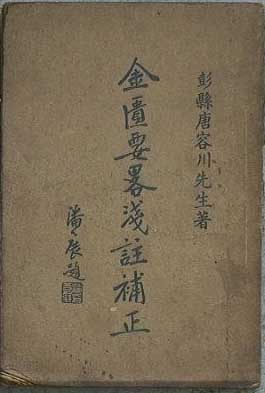 彭縣唐容川先生著
金匱要畧淺註補正
潘辰題